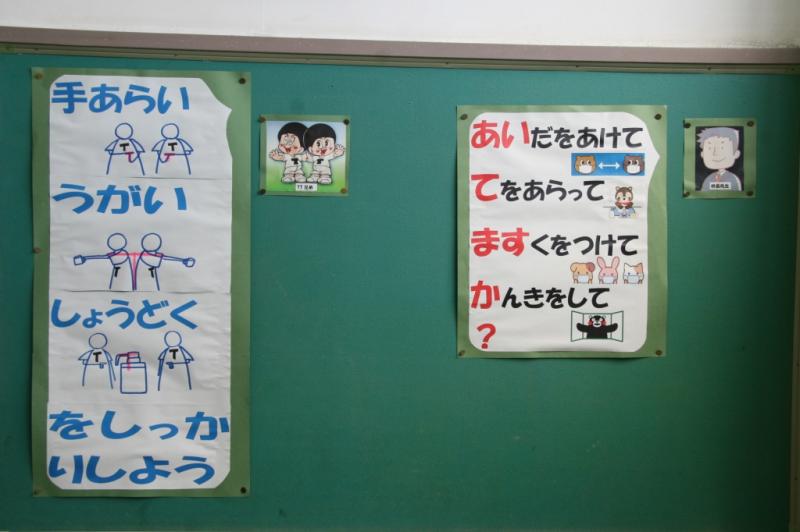 手あらい
T T
うがい
T T
しょうどく
T T
をしっか
りしよう
TT兄弟
あいだをあけて
てをあらって
ますくをつけて
かんきをして
?